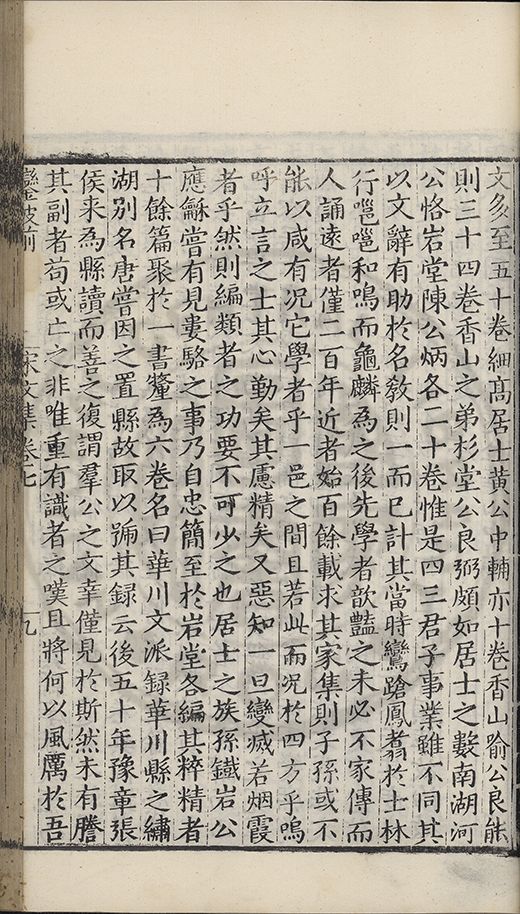 文多至五十卷細高居士黄公中輔亦十卷香山喻公良能
則三十四卷香山之弟杉堂公良弼頗如居士之數南湖河
公恪岩堂陳公炳各二十卷惟是四三君子事業雖不同其
以文辭有助於名敎則一而已計其當時鸞蹌鳳翥於士林
行嗈嗈和鳴而龜麟爲之後先學者歆豔之未必不家傳而
人誦遠者僅二百年近者始百餘載求其家集則子孫或不
能以咸有况它學者乎一邑之間且若此而况於四方乎嗚
呼立言之士其心勤矣其慮精矣又惡知一旦變滅若烟霞
者乎然則編類者之功要不可少之也居士之族孫鐵岩公
應龢嘗有見婁駱之事乃自忠簡至於岩堂各編其粹精者
十餘篇聚於一書釐爲六卷名曰華川文派録華川縣之繡
湖别名唐嘗因之置縣故取以號其録云後五十年豫章張
侯来爲縣讀而善之復謂羣公之文幸僅見於斯然未有謄
其副者苟或亡之非唯重有識者之嘆且將何以風厲於吾
鑾坡前
宋文集卷七
九